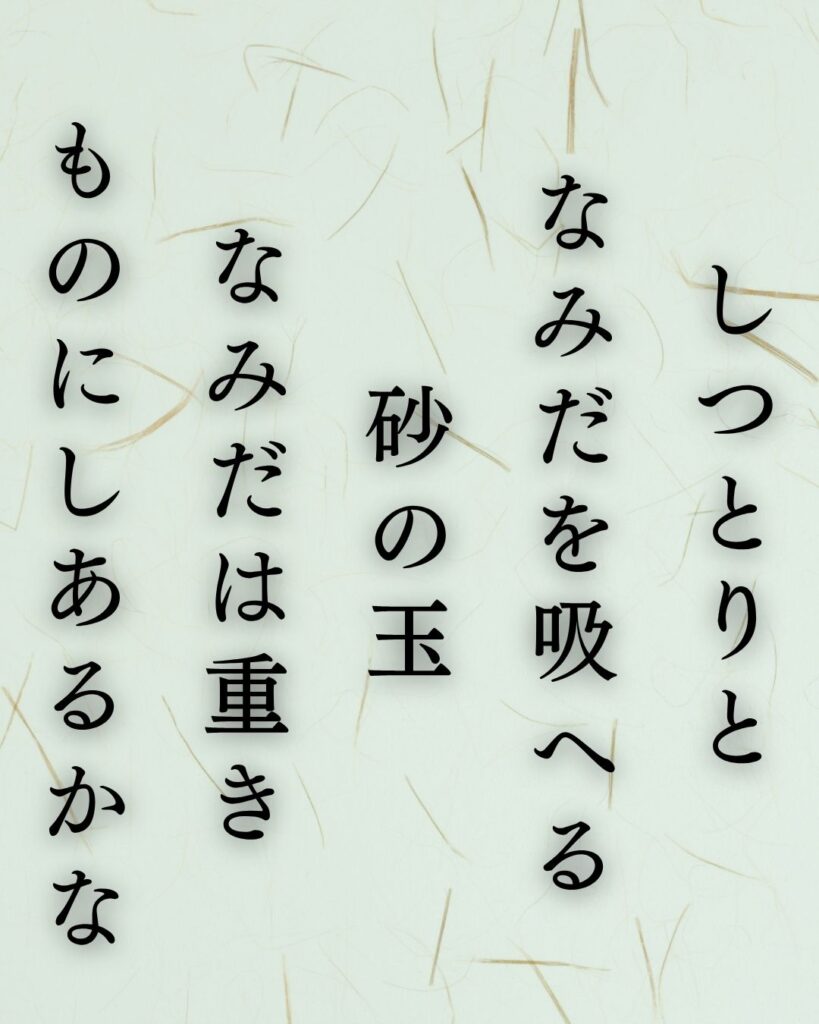 しつとりと
なみだを吸へる
砂の玉
なみだは重き
ものにしあるかな